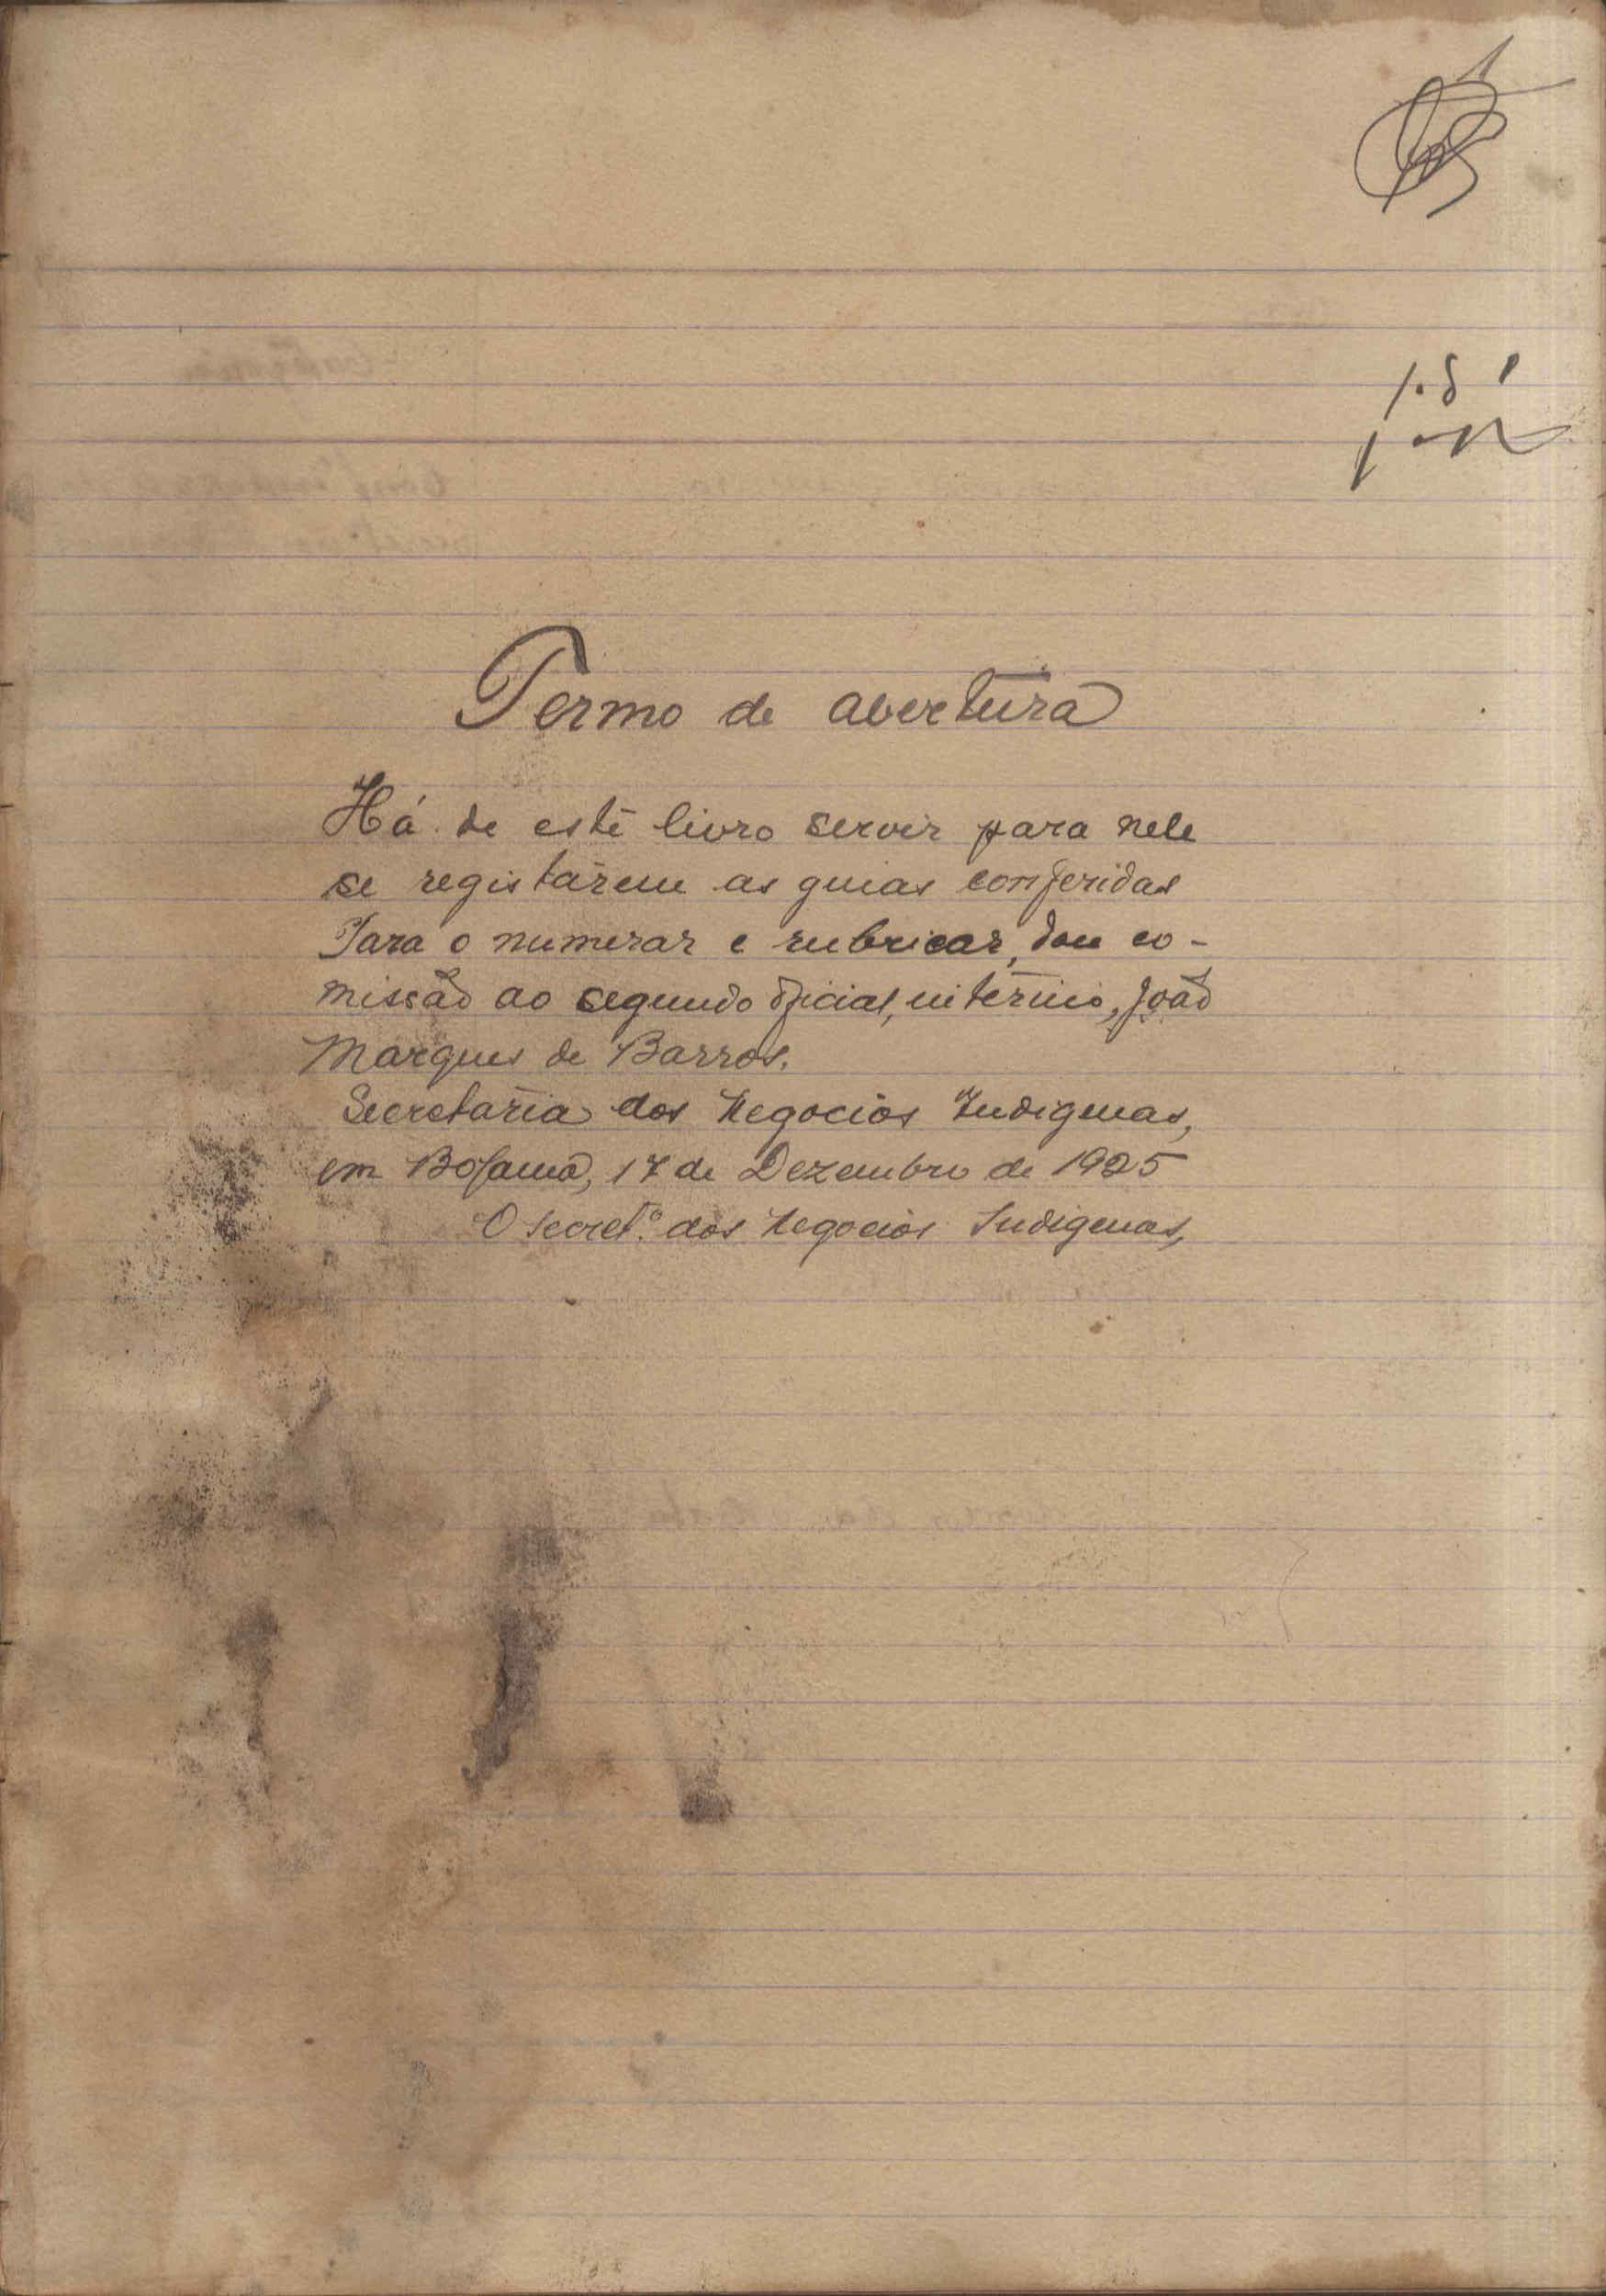 1
Termo de abertura
Há de este livro servir para nele
se registarem as guias conferidas
Para o numerar e rubricar, dou co-
missão ao segundo oficial, interino, João
Marques de Barros.
Secretaria dos Negocios Indigenas,
em Bolama, 17 de Dezembro de 1925
O Secret.º dos Negocios Indigenas,